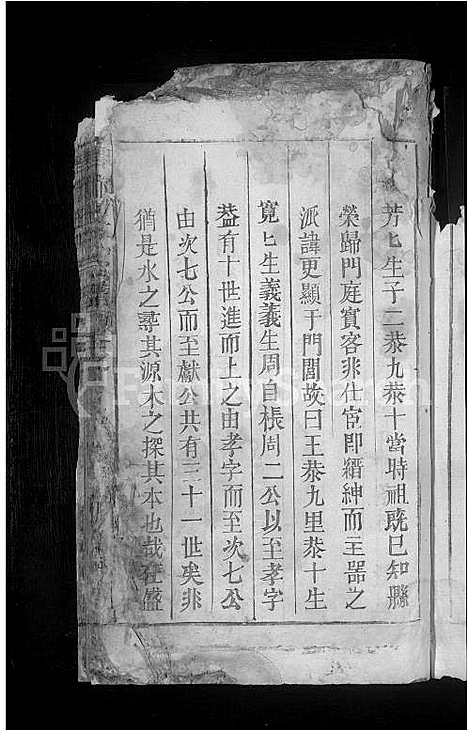 芳匕生子二恭九恭十當時祖既已知縣
榮歸門庭賓客非仕宦即縉紳而主器之
派諱更顯于門閭故曰王恭九里恭十生
寬匕生義義生周自棖周二公以至孝字
葢有十世進而上之由孝字而至次七公
由次七公而至獻公共有三十一世矣非
猶是水之尋其源木之探其本也哉在盛